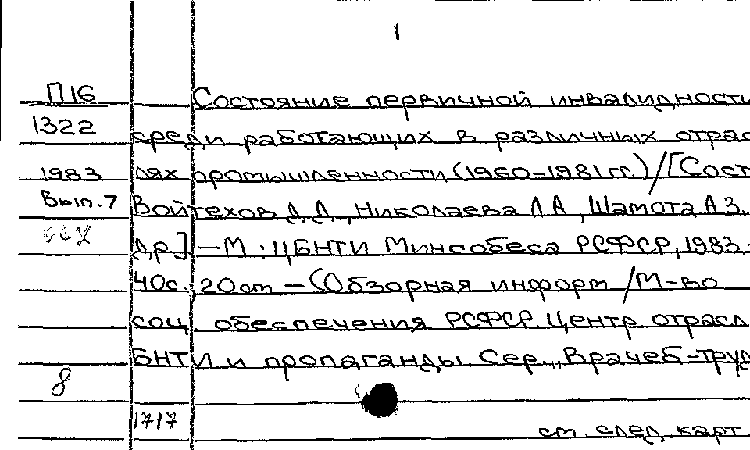 1
П16 Состояние первичной инвалидност
1322 среди работающих в различных отрас
1983 лях промышленности (1960-1981 гг.) / [Сост
Вып. 7 Войтехов Д.Д., Николаева Л.А., Шамота А.З.
др.] – М.: ЦБНТИ Минсобеса РСФСР, 1983.
40с., 20 от – (Обзорная информ / М-во
соц. обеспечения РСФСР. Центр отрасл
БНТИ и пропаганды Сер. „Врачеб-труд
8
1717
см. след. карт